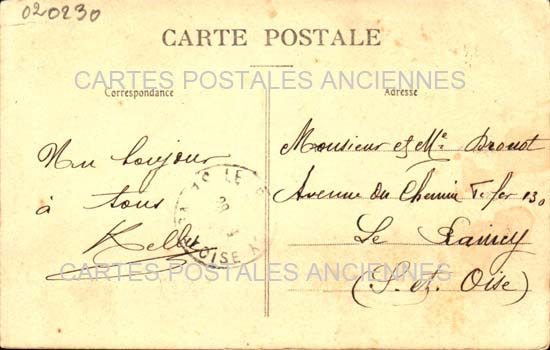 020230
CARTE POSTALE
CARTES POSTALES ANCIENNES
Correspondance
Adresse
Un bonjour
à tous
Kelle
Monsieur et Me Drouot
Avenue du Chemin T. fer 130
Le Raincy
(S. et. Oise)
LE
OISE
CARTES POSTALES ANCIENNES